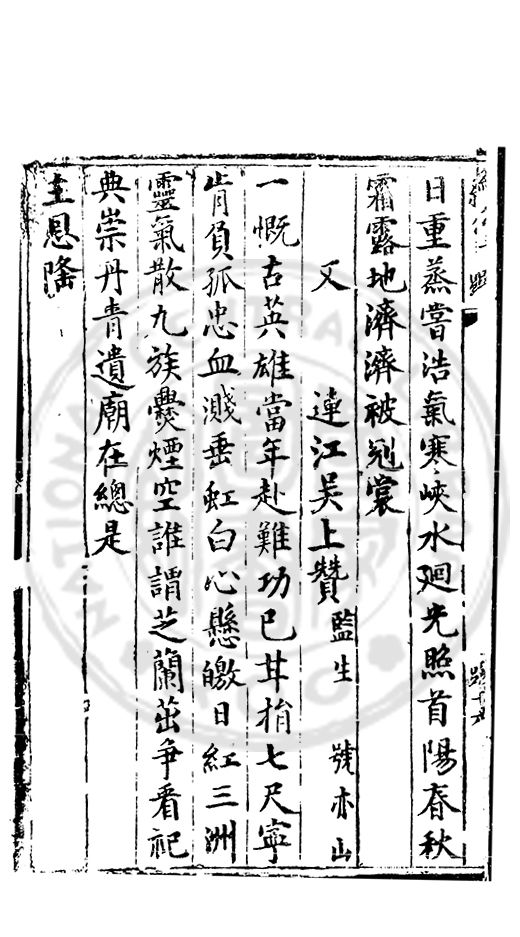 日重蒸嘗浩氣寒峽水廻光照首陽春秋
霜露地濟濟被冠裳
又 連江吳上贊 監生 號亦山
一慨古英雄當年赴難功已甘捐七尺寧
肯負孤忠血濺垂虹白心懸皦日紅三洲
靈氣散九族爨煙空誰謂芝蘭茁争看祀
典崇丹青遺廟在總是
主恩隆